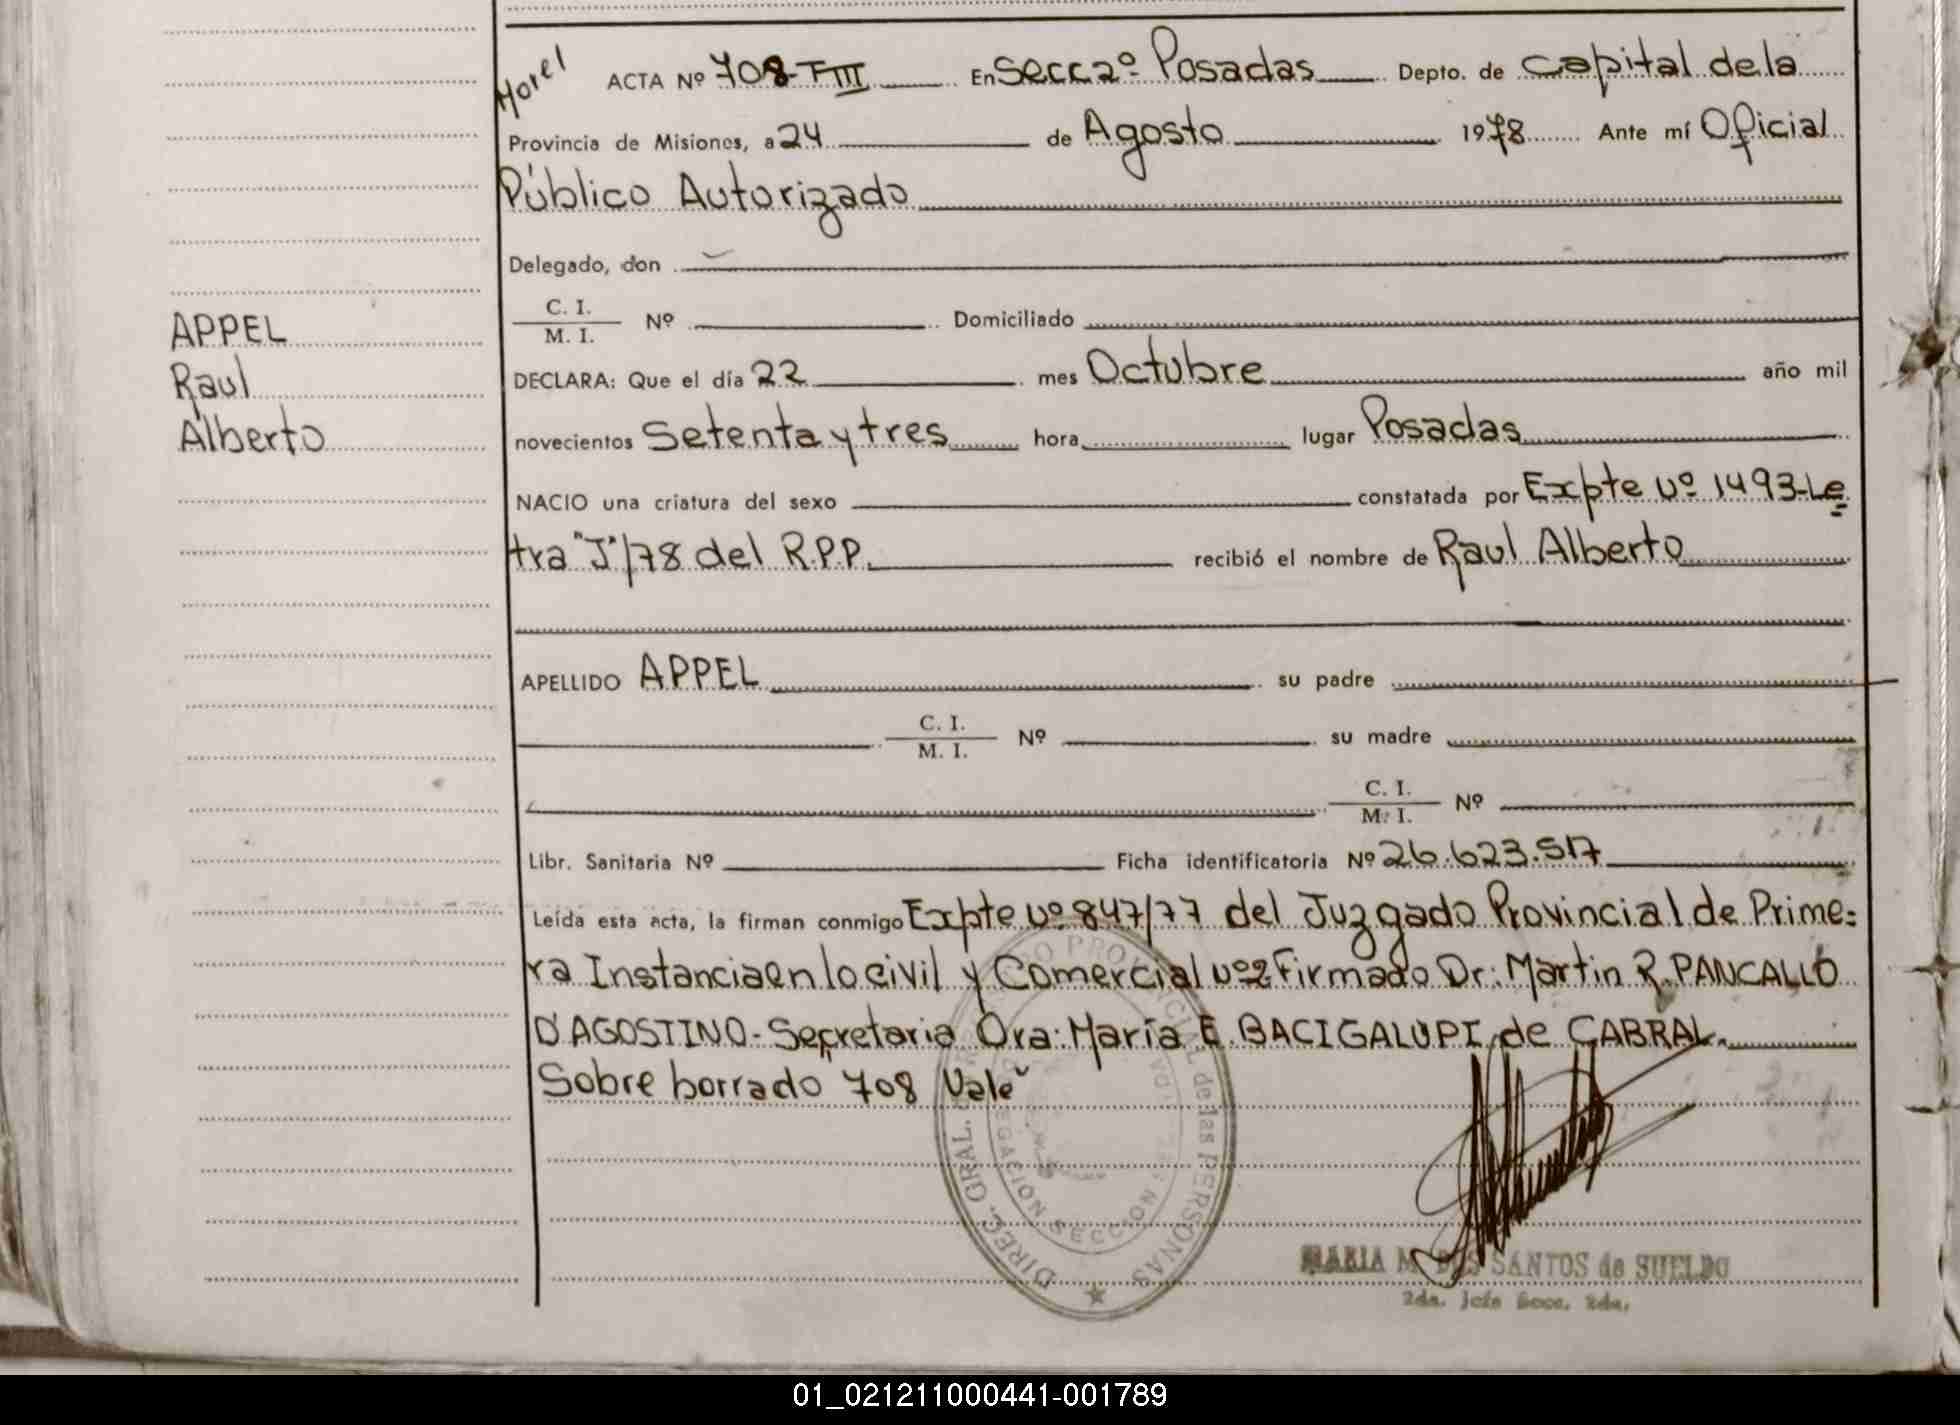 Morel
ACTA Nº 708-T-III En Secc 2º Posadas Depto. de Capital de la
Provincia de Misiones, a 24 de Agosto 1978 Ante mí Oficial
Público Autorizado
Delegado, don
C. I.
M. I.
Nº Domiciliado
APPEL
Raul
Alberto
DECLARA: Que el día 22 mes Octubre año mil
novecientos Setenta y tres hora lugar Posadas
NACIO una criatura del sexo constatada por Expte Nº 1493-Le
tra "J"/78 del R.P.P. recibió el nombre de Raul Alberto
APELLIDO APPEL su padre
C. I.
M. I.
Nº su madre
C. I.
M. I.
Nº
Libr. Sanitaria Nº Ficha identificatoria Nº 26.623.517
Leída esta acta, la firman conmigo Expte Nº 847/77 del Juzgado Provincial de Prime=
ra Instancia en lo civil y Comercial Nº 2 Firmado Dr: Martin R. PANCALLO
D'AGOSTINO- Secretaria Dra: María E. BACIGALUPI de CABRAL.
Sobre borrado "708 Vale"
DIREC. GRAL. PROVINCIAL de las PERSONAS
SECCION
MARIA M. DOS SANTOS de SUELDO
2da. Jefe Secc. 2da.
01_021211000441-001789